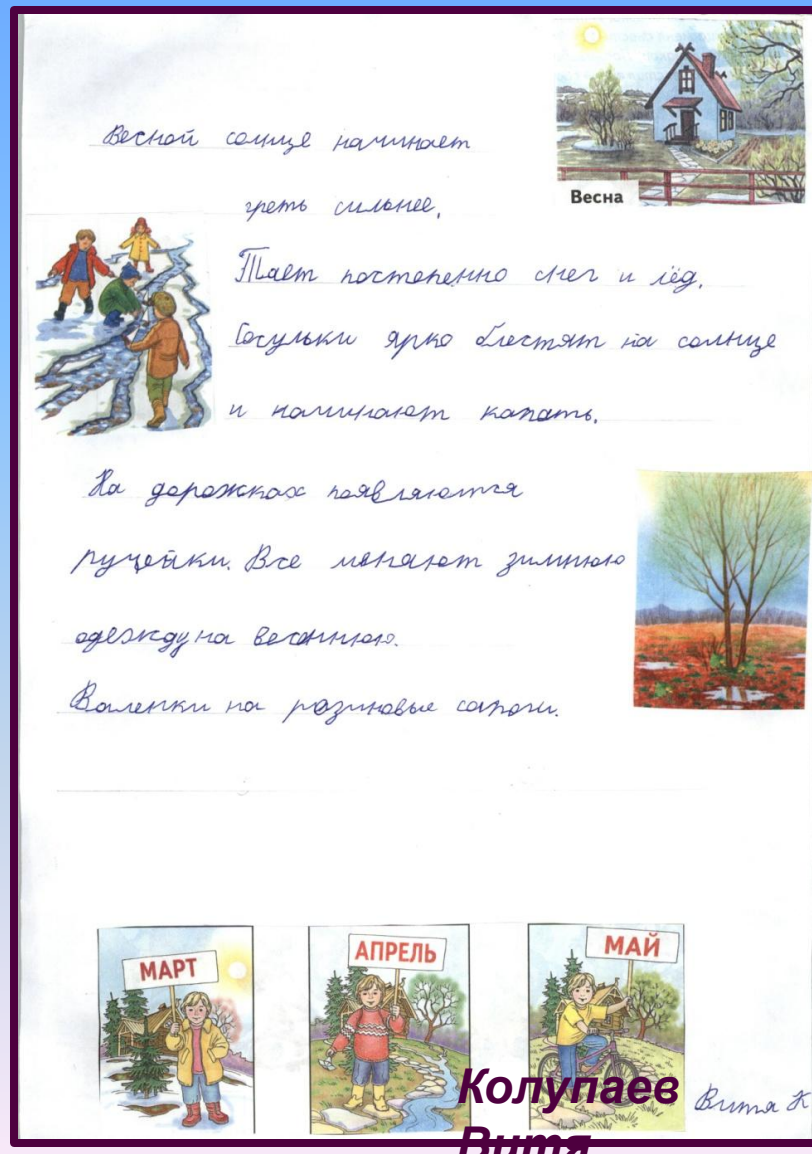 Весна
Весной солнце начинает
греть сильнее.
Тает постепенно снег и лёд.
Сосульки ярко блестят на солнце
и начинают капать.
На дорожках появляются
ручейки. Все меняют зимнюю
одежду на весеннюю.
Валенки на резиновые сапоги.
МАРТ
АПРЕЛЬ
МАЙ
Колупаев
Витя
Витя К